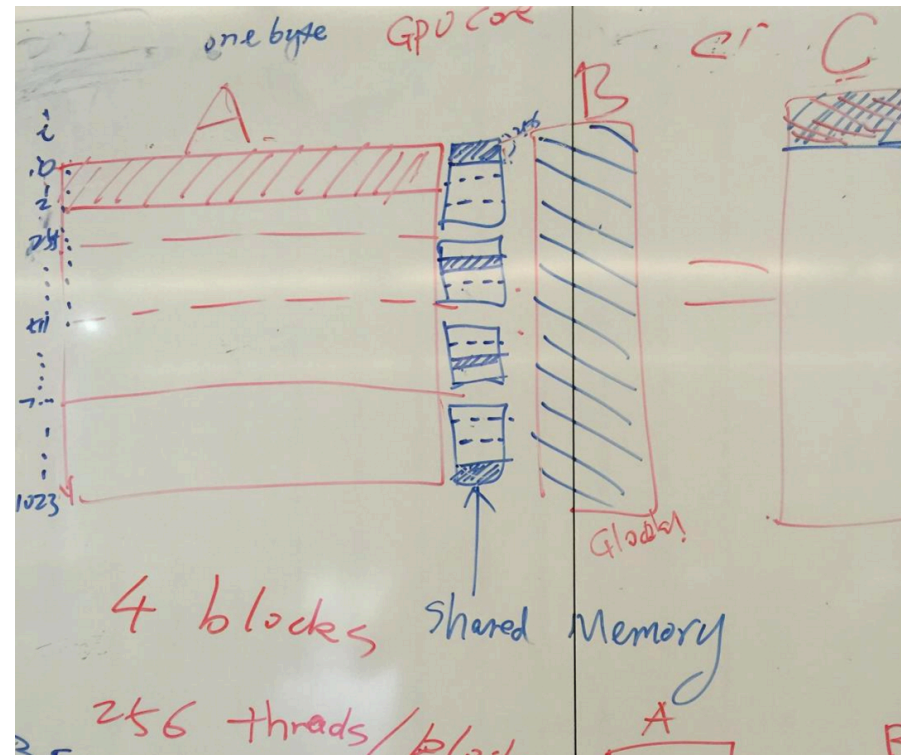 one byte GPU Core
A B C
i
0
256
1023
Global
4 blocks
Shared Memory
256 threads/block
A